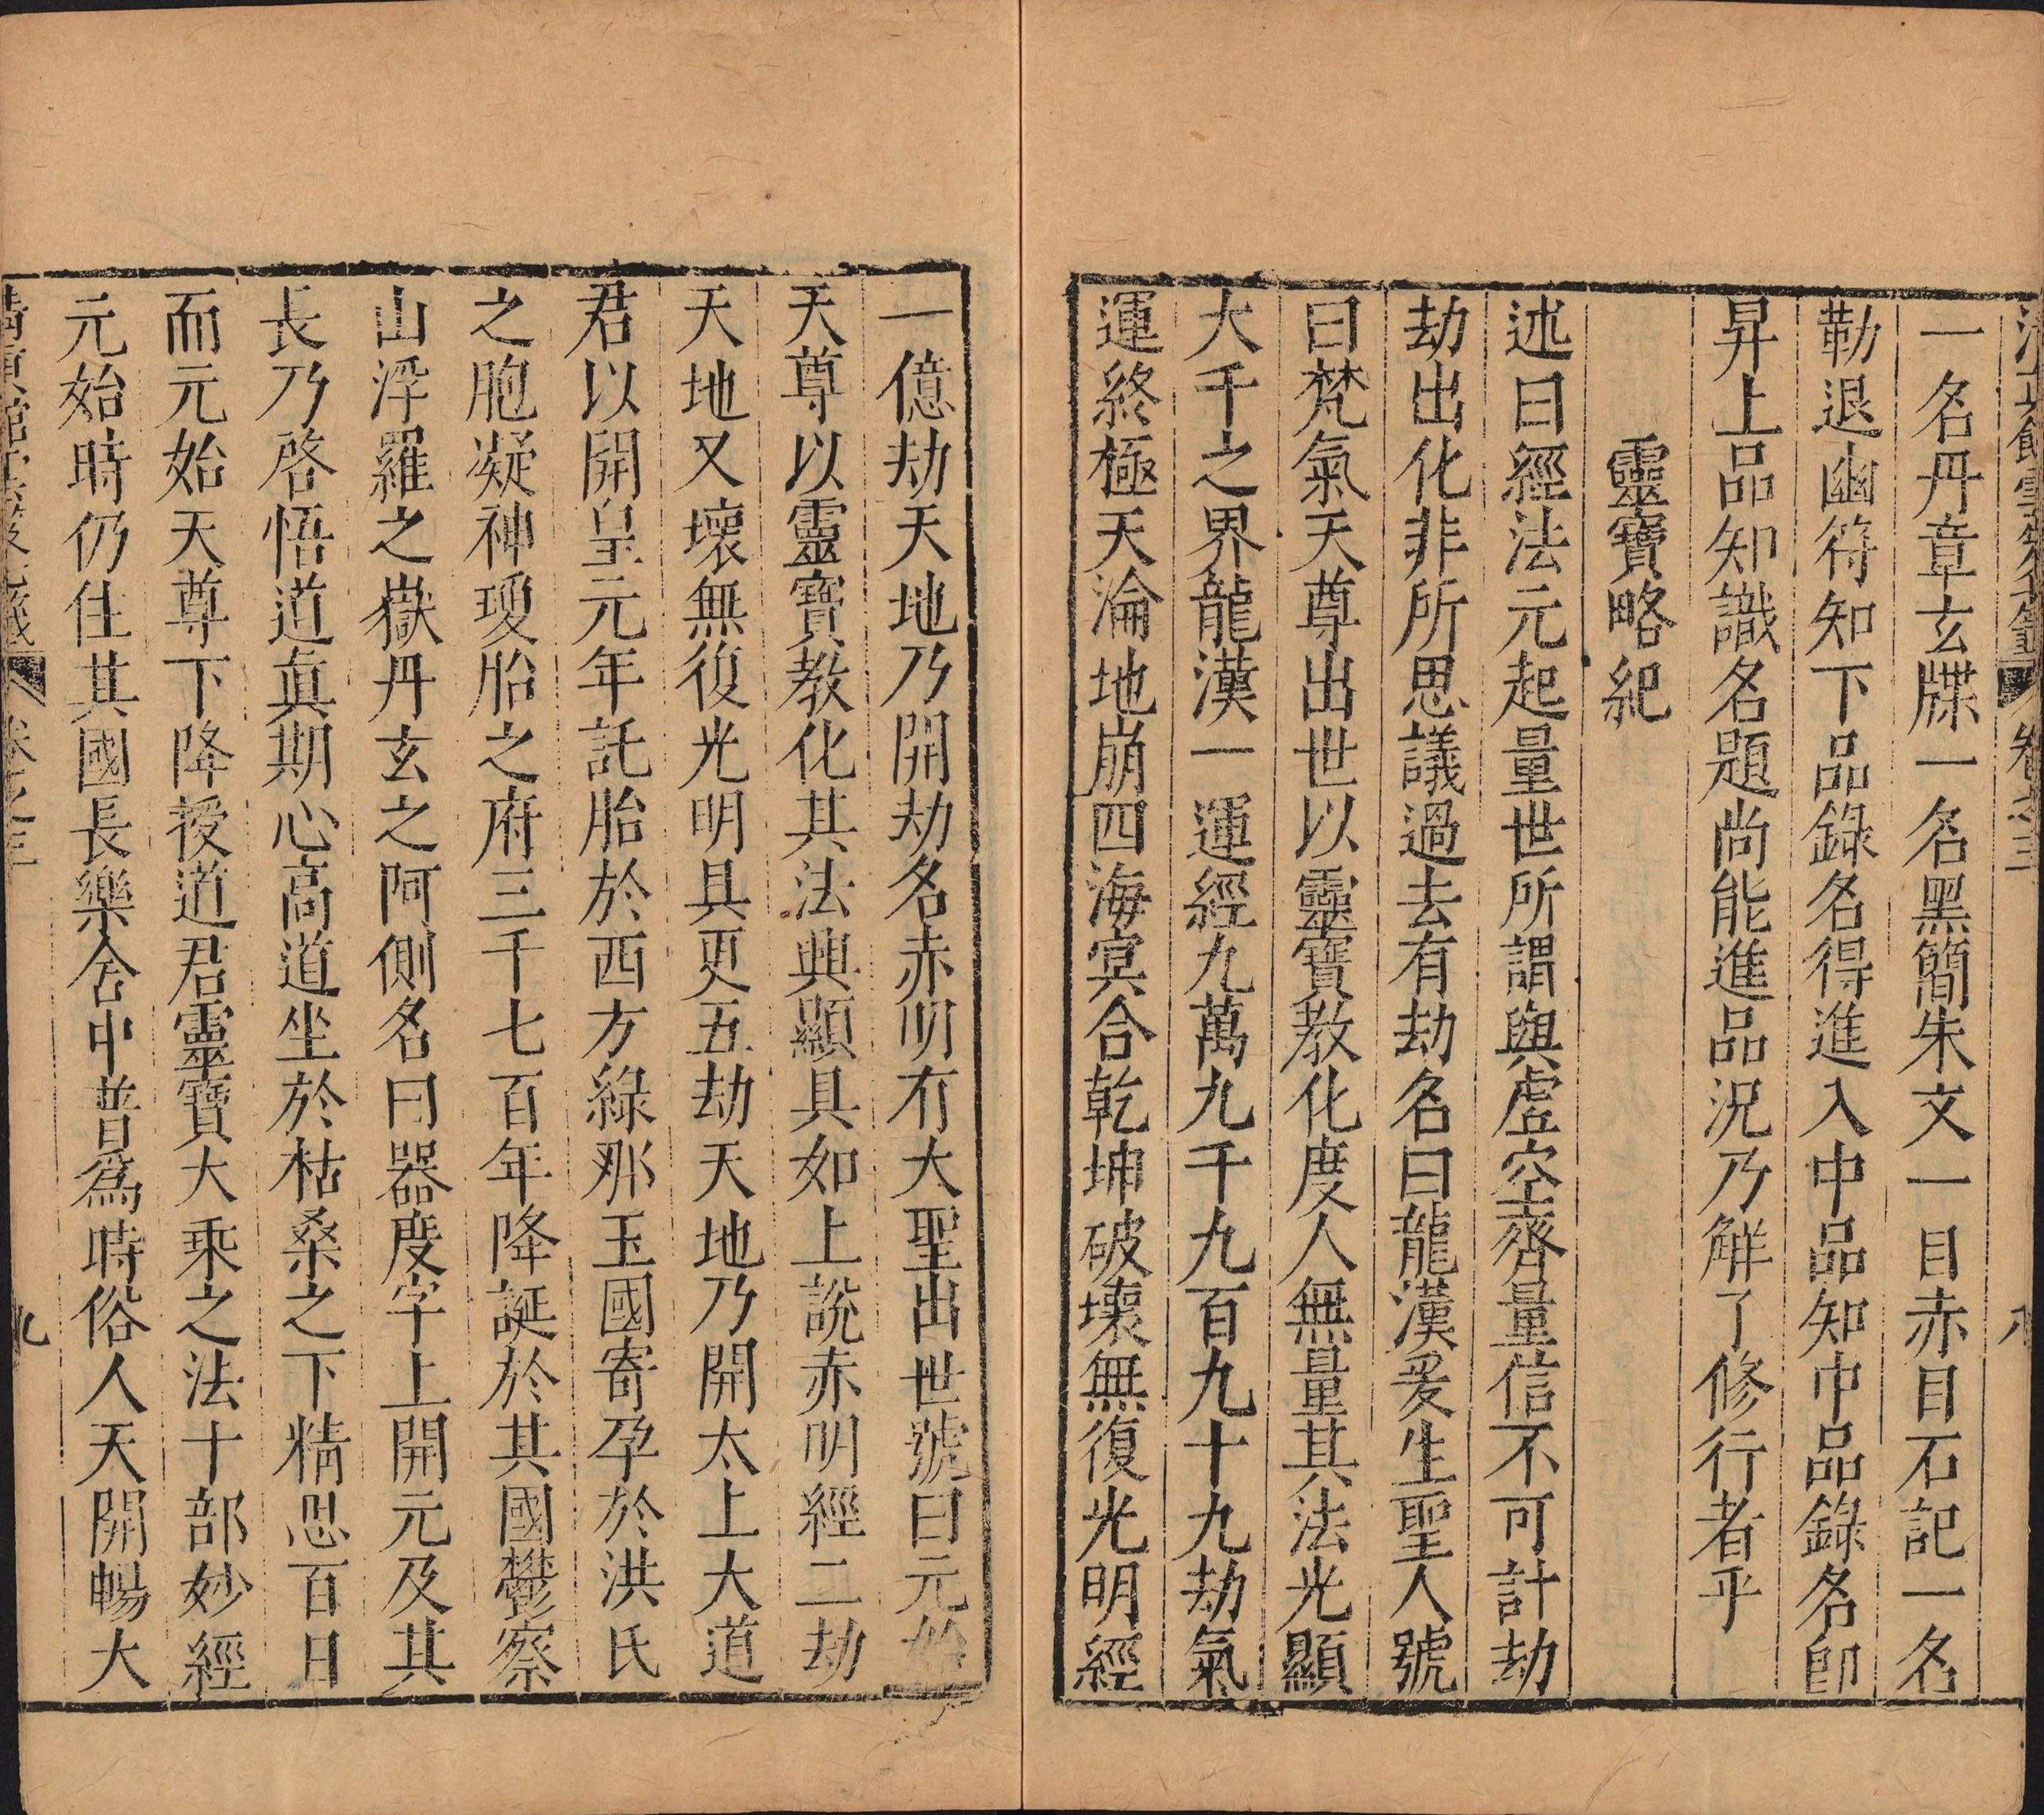 一名丹章玄牒一名黑簡朱文一目赤目石記一名
勒退幽符知下品錄名得進入中品知中品錄名卽
昇上品知識名題尚能進品況乃解了修行者乎
靈寶略紀
述曰經法元起量世所謂與虛空齊量信不可計劫
劫出化非所思議過去有劫名曰龍漢爰生聖人號
曰梵氣天尊出世以靈寶教化度人無量其法光顯
大千之界龍漢一運經九萬九千九百九十九劫氣
運終極天淪地崩四海冥合乾坤破壞無復光明經
一億劫天地乃開劫名赤明有大聖出世號曰元始
天尊以靈寶教化其法興顯具如上說赤明經二劫
天地又壞無復光明具更五劫天地乃開太上大道
君以開皇元年託胎於西方綠那玉國寄孕於洪氏
之胞凝神瓊胎之府三千七百年降誕於其國鬱察
山浮羅之嶽丹玄之阿側名曰器度字上開元及其
長乃啓悟道眞期心高道坐於枯桑之下精思百日
而元始天尊下降授道君靈寶大乘之法十部妙經
元始時仍住其國長樂舍中普爲時俗人天開暢大
卷之三
九